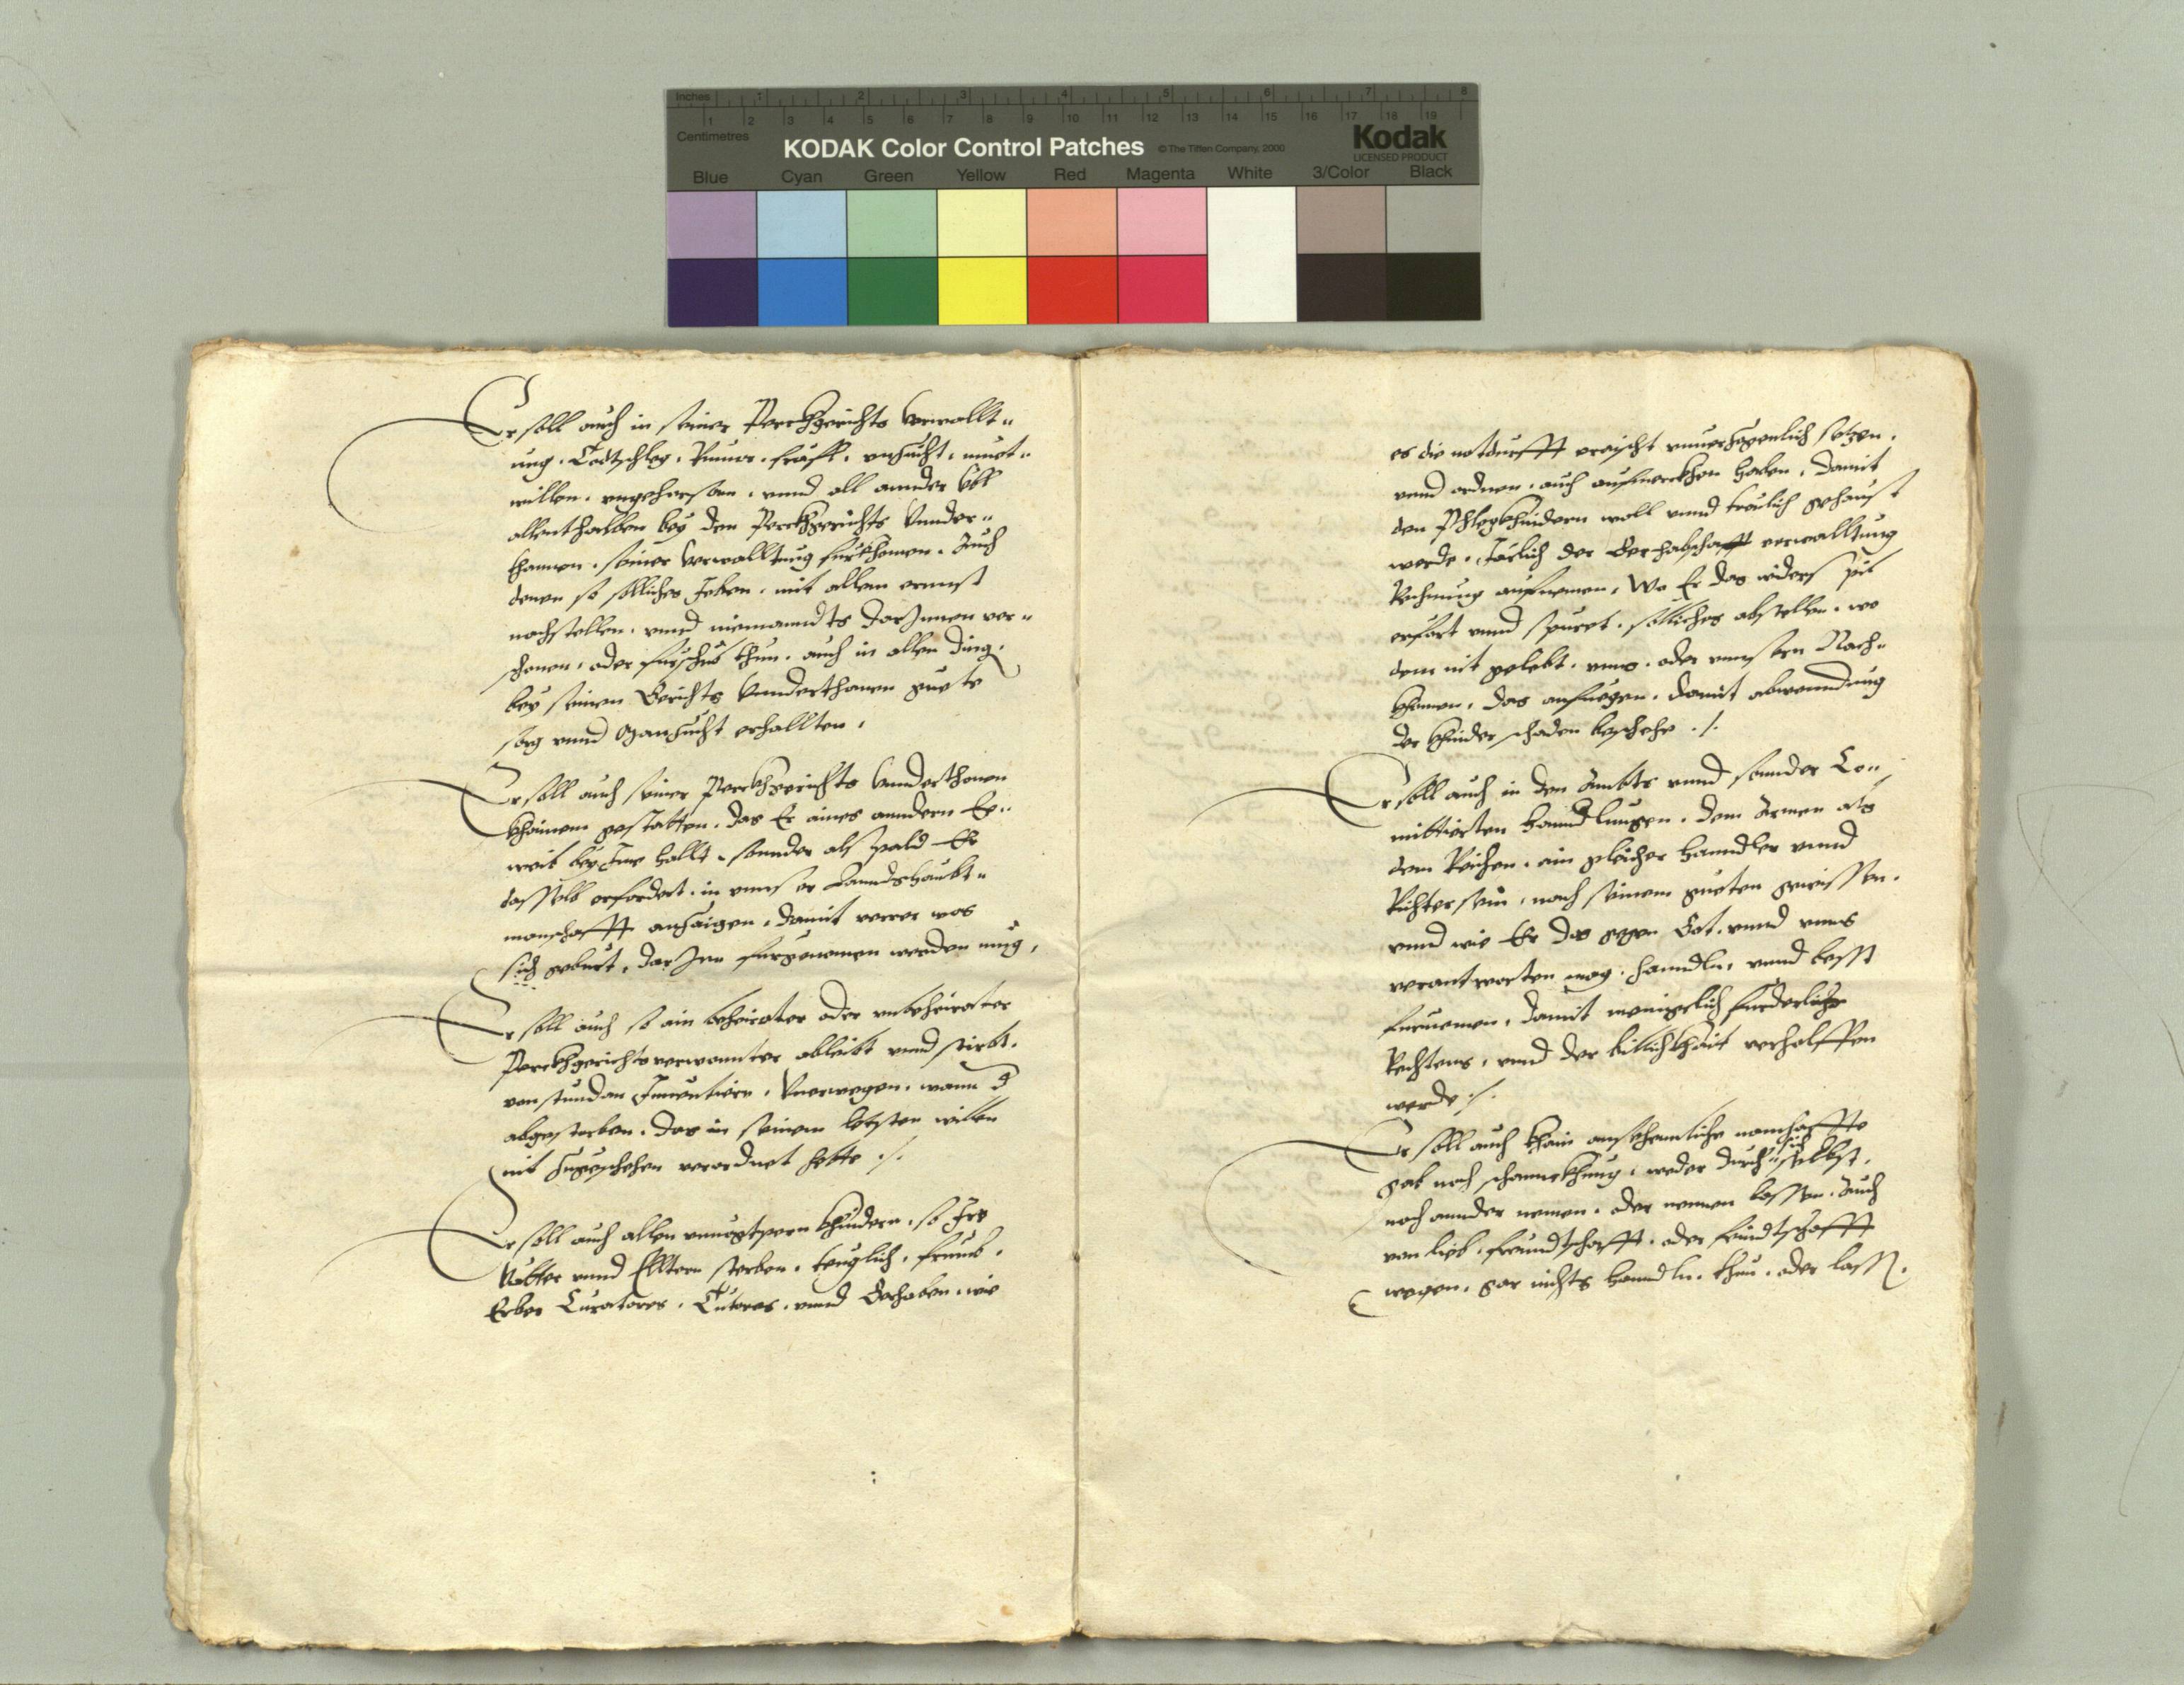 Inches 1 2 3 4 5 6 7 8
Centimetres 1 2 3 4 5 6 7 8 9 10 11 12 13 14 15 16 17 18 19
KODAK Color Control Patches © The Tiffen Company, 2000 Kodak
LICENSED PRODUCT
Blue Cyan Green Yellow Red Magenta White 3/Color Black
Er soll auch in seiner Perckhgerichts verwallt„
ung. Todtschleg. Rumor. fräffl. unzucht. muet„
willen. ungehorsam. unnd all annder übl
allenthalben bey den Perckhgerichts Unnder„
thannen. seiner verwalltung fürkhomen. Auch
denen so solliches Ieben. mit allem ernnst
nachstellen. unnd niemanndts darJnnen ver„
schonen. oder fürschub thun. auch in allen ding.
bey seinen Gerichts Unnderthanen guete
sorg unnd Manszucht erhallten.
Er soll auch seiner Perckhgerichts Unnderthonen
khainem gestatten. das Er aines anndern Ee„
weib bey Ime hallt. sonnder als pald Er
dasselb erfordert. in unnser Lanndshaubt„
manschafft anzaigen. damit verrer was
sich gebürt. darJnn fürgenomen werden müg.
Er soll auch so ain beheirater oder unbeheirater
Perckhgerichtsverwannter ableibt unnd stirbt.
von stundan Inuentiern. Unerwegen. wann d
abgestorben. das in seinem letsten willen
nit zugeschehen verordnet hette ./.
Er soll auch allen unuogtparn khindern. so Ire
Vätter unnd Elltern sterben. teuglich. frumb.
Erber Curatores. Tutores. unnd Gerhaben. wie
es die notdurfft eraischt unuerzogenlich setzen.
unnd ordnen. auch aufmerckhen haben. damit
den Phlegkhindern woll unnd treulich gehaust
werde. Järlich der Gerhabschafft verwalltung
Rechnung aufnemen. Wo Er das widerspil
erfart unnd spüret. solliches abstellen. wo
dem nit gelebt. unns. oder unnsern Nach„
khomen. das anfuegen. damit abwenndung
der khinder schaden beschehe ./.
Er soll auch in den Ambts unnd sonnder Co„
mittierten hanndlungen. dem Armen als
dem Reichen. ain gleicher hanndler unnd
Richter sein. nach seinem gueten gewissen.
unnd wie Er das gegen Got. unnd unns
verantworten mag. hanndln. unnd besst
fürnemen. damit menigelich fürderlichs
Rechtens. unnd der billichkhait verholffen
werde ./.
Er soll auch khain ansehennliche namhaffte
gab noch schannckhung. weder durch sich selbst.
noch annder nemen. oder nemen lassen. Auch
von lieb. freundtschafft. oder feindtschafft
wegen. gar nichts hanndln. thun. oder lassn.